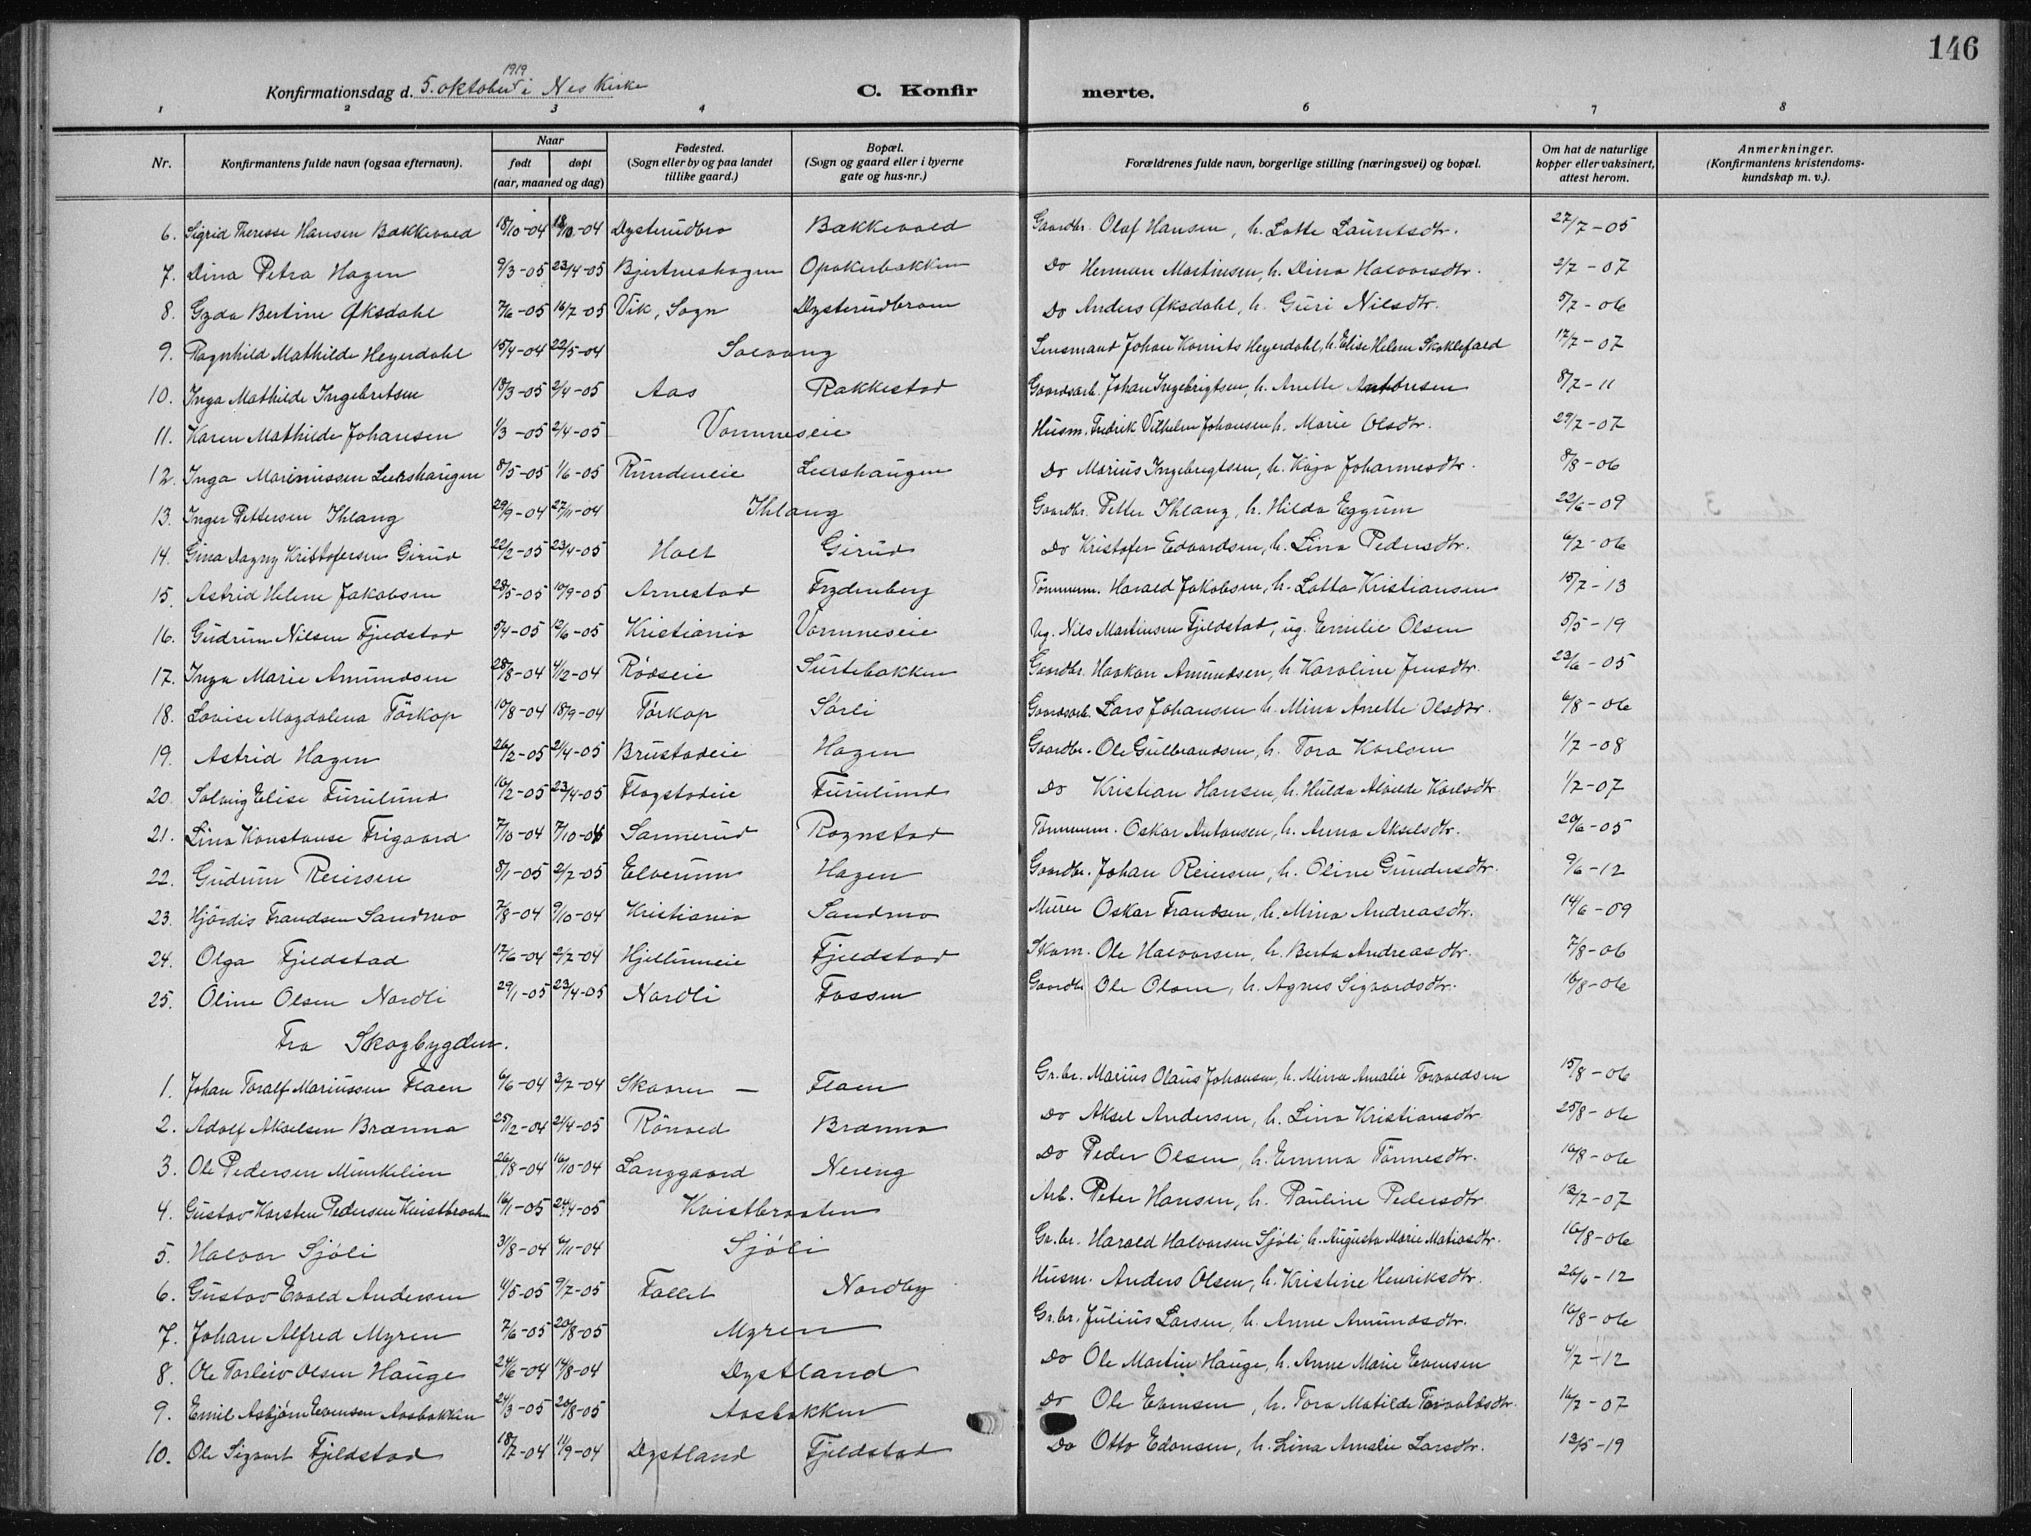 146
Konfirmationsdag d. 5. oktober 1919 i Nes kirke C. Konfir merte.
1 2 3 4 6 7 8
Nr. Konfirmantens fulde navn (ogsaa efternavn). Naar født døpt (aar, maaned og dag) Fødested. (Sogn eller by og paa landet tillike gaard.) Bopæl. (Sogn og gaard eller i byerne gate og hus-nr.) Forældrenes fulde navn, borgerlige stilling (næringsvei) og bopæl. Om hat de naturlige kopper eller vaksinert, attest herom. Anmerkninger. (Konfirmantens kristendomskundskap m. v.).
6. Sigrid Therese Hansen Bakkevold 18/10-04 18/10-04 Dysterudbro Bakkevold Gaardbr. Olaf Hansen, h. Lotte Lauritsdtr. 27/7-05
7. Dina Petra Hagen 9/3-05 23/4-05 Bjertneshagen Opakerbakken Do Herman Martinsen, h. Dina Halvorsdtr. 2/7-07
8. Gyda Bertine Øksdahl 7/6-05 16/7-05 Vik, Sogn Dysterudbroen Do Anders Øksdahl, h. Guri Nilsdtr. 5/7-06
9. Ragnhild Mathilde Heyerdahl 15/4-04 22/5-04 Solvang Lensmand Johan Kornits Heyerdahl, h. Elise Helene Skoklefald 17/7-07
10. Inga Mathilde Ingebretsen 13/3-05 2/4-05 Aas Rakkestad Gaardsarb. Johan Ingebrigtsen, h. Anette Antonsen 8/7-11
11. Karen Mathilde Johansen 1/3-05 2/4-05 Vormneseie Husm. Fredrik Vilhelm Johansen h. Marie Olsdtr. 29/7-07
12. Inga Marinussen Leershaugen 8/5-05 1/6-05 Rundeneie Leershaugen Do Marius Ingebrigtsen, h. Kaja Johannesdtr. 8/8-06
13. Inger Pettersen Ihlang 29/9-04 27/11-04 Ihlang Gaardbr. Petter Ihlang, h. Hilda Eggum 22/6-09
14. Gina Dagny Kristofersen Girud 22/2-05 23/4-05 Holt Girud Do Kristofer Edvardsen, h. Lina Pedersdtr. 6/2-06
15. Astrid Helene Jakobsen 28/5-05 10/9-05 Arnestad Frydenberg Tømmerm. Harald Jakobsen, h. Lotta Kristiansen 15/7-13
16. Gudrun Nilsen Fjeldstad 5/4-05 12/6-05 Kristiania Vormneseie Ug. Nils Martinsen Fjeldstad, ug. Emilie Olsen 5/5-19
17. Inga Marie Amundsen 28/8-04 4/12-04 Rödseie Surtebakken Gaardbr. Haakon Amundsen, h. Karoline Jensdtr. 23/6-05
18. Lovise Magdalena Törkop 10/8-04 18/9-04 Törkop Sörli Gaardsarb. Lars Johansen h. Mina Anette Olsdtr. 6/8-06
19. Astrid Hagen 26/2-05 2/4-05 Brustadeie Hagen Gaardbr. Ole Gulbrandsen, h. Tora Karlsen 1/7-08
20. Solveig Elise Furulund 16/2-05 23/4-05 Flagstadeie Furulund Do Kristian Hansen, h. Hulda Alvilde Karlsdtr. 1/2-07
21. Lina Konstanse Frigaard 7/10-04 7/10-04 Sannerud Rognstad Tömmerm. Oskar Antonsen, h. Anna Akselsdtr. 20/6-05
22. Gudrun Reiersen 8/1-05 2/2-05 Elverum Hagen Gaardbr. Johan Reiersen, h. Oline Gundersdtr. 9/6-12
23. Hjördis Frandsen Sandmo 7/8-04 9/10-04 Kristiania Sandmo Murer Oskar Frandsen, h. Mina Andreasdtr. 14/6-09
24. Olga Fjeldstad 17/6-04 2/7-04 Hjellumeie Fjeldstad Skom. Ole Halvorsen, h. Berta Andreasdtr. 7/8-06
25. Oline Olsen Nordli 29/1-05 23/4-05 Nordli Fossen Gaardbr Ole Olsen, h. Agnes Sigvardsdtr. 16/8-06
Fra Skogbygden.
1. Johan Toralf Mariussen Flaen 6/6-04 3/7-04 Skaaren — Flaen Gr.br. Marius Olaus Johansen, h. Minna Amalie Torvaldsen 15/8-06
2. Adolf Akselsen Brænna 25/12-04 2/4-05 Rönold Brænna Do Aksel Andersen, h. Lina Kristiansdtr. 25/8-06
3. Ole Pedersen Munkelien 26/8-04 16/10-04 Langgaard Nereng Do Peder Olsen, h. Emma Tönnesdtr. 16/8-06
4. Gustav Karsten Pedersen Kvistbraaten 16/1-05 24/4-05 Kvistbraaten Arb. Peter Hansen, h. Pauline Pedersdtr. 12/7-07
5. Halvor Sjöli 31/8-04 6/11-04 Sjöli Gr.br. Harald Halvorsen Sjöli, h. Augusta Marie Matiasdtr. 16/8-06
6. Gustav Evald Andersen 4/5-05 9/7-05 Follet Nordby Husm. Anders Olsen, h. Kristine Henriksdtr. 26/6-12
7. Johan Alfred Myren 7/6-05 20/8-05 Myren Gr.br. Julius Larsen, h. Anne Amundsdtr. 16/8-06
8. Ole Torleiv Olsen Hauge 24/6-04 14/8-04 Dystland Do Ole Martin Hauge, h. Anne Marie Evensen 4/7-12
9. Emil Asbjørn Evensen Aasbakken 24/3-05 20/8-05 Aasbakken Do Ole Evensen, h. Tora Matilde Torvaldsdtr. 16/7-07
10. Ole Sigvart Fjeldstad 18/7-04 11/9-04 Dystland Fjeldstad Do Otto Edvardsen, h. Lina Amalie Larsdtr. 13/5-19